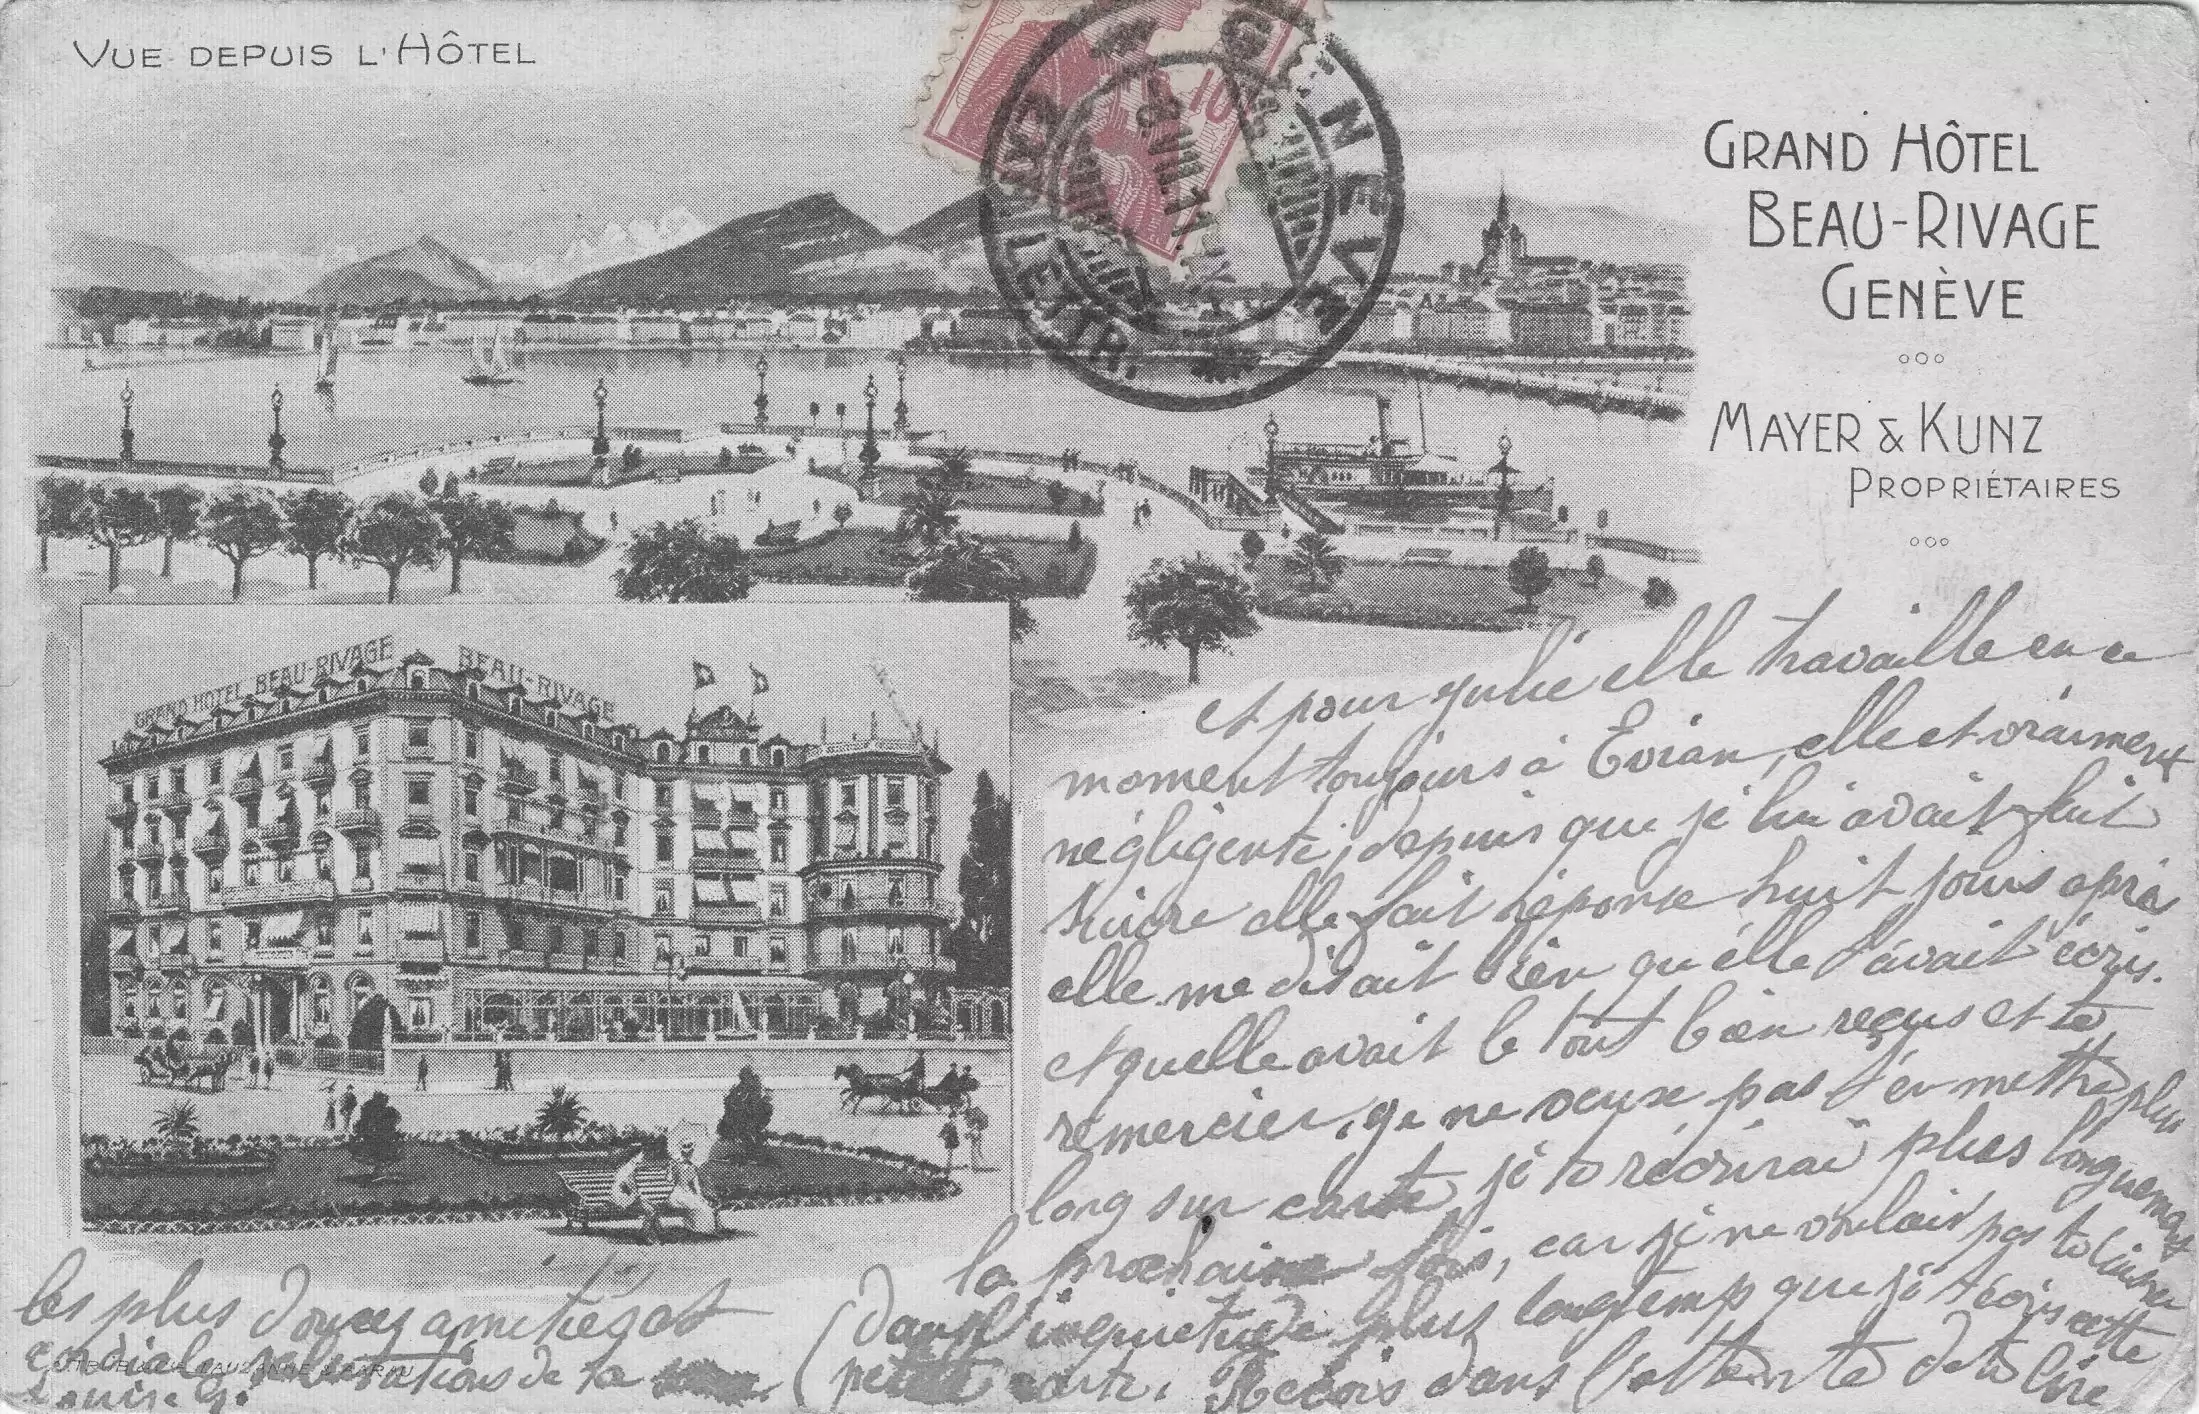 VUE DEPUIS L'HÔTEL
10
GENÈVE
EXP. LETTR.
8.VIII.
GRAND HÔTEL
BEAU-RIVAGE
GENÈVE
MAYER & KUNZ
PROPRIÉTAIRES
GRAND HOTEL BEAU-RIVAGE
BEAU-RIVAGE
et pour Julie elle travaille en ce
moment toujours à Evian, elle et vraiment
négligente, depuis que je lui avait fait
suivre elle fait réponse huit jours après
elle me disait bien qu'elle t'avait écris.
et quelle avait le tout bien reçus et te
remercier, je ne veux pas t'en mettre plus
long sur carte je té récrirai plus longuement
la prochaine fois, car je ne voulais pas te laisser
dans l'inquietude plus longtemp que je t'écris cette
petite carte. Recois dans l'attente de te lire
les plus douces amitiés et
cordiale salutations de ta
Louise G.